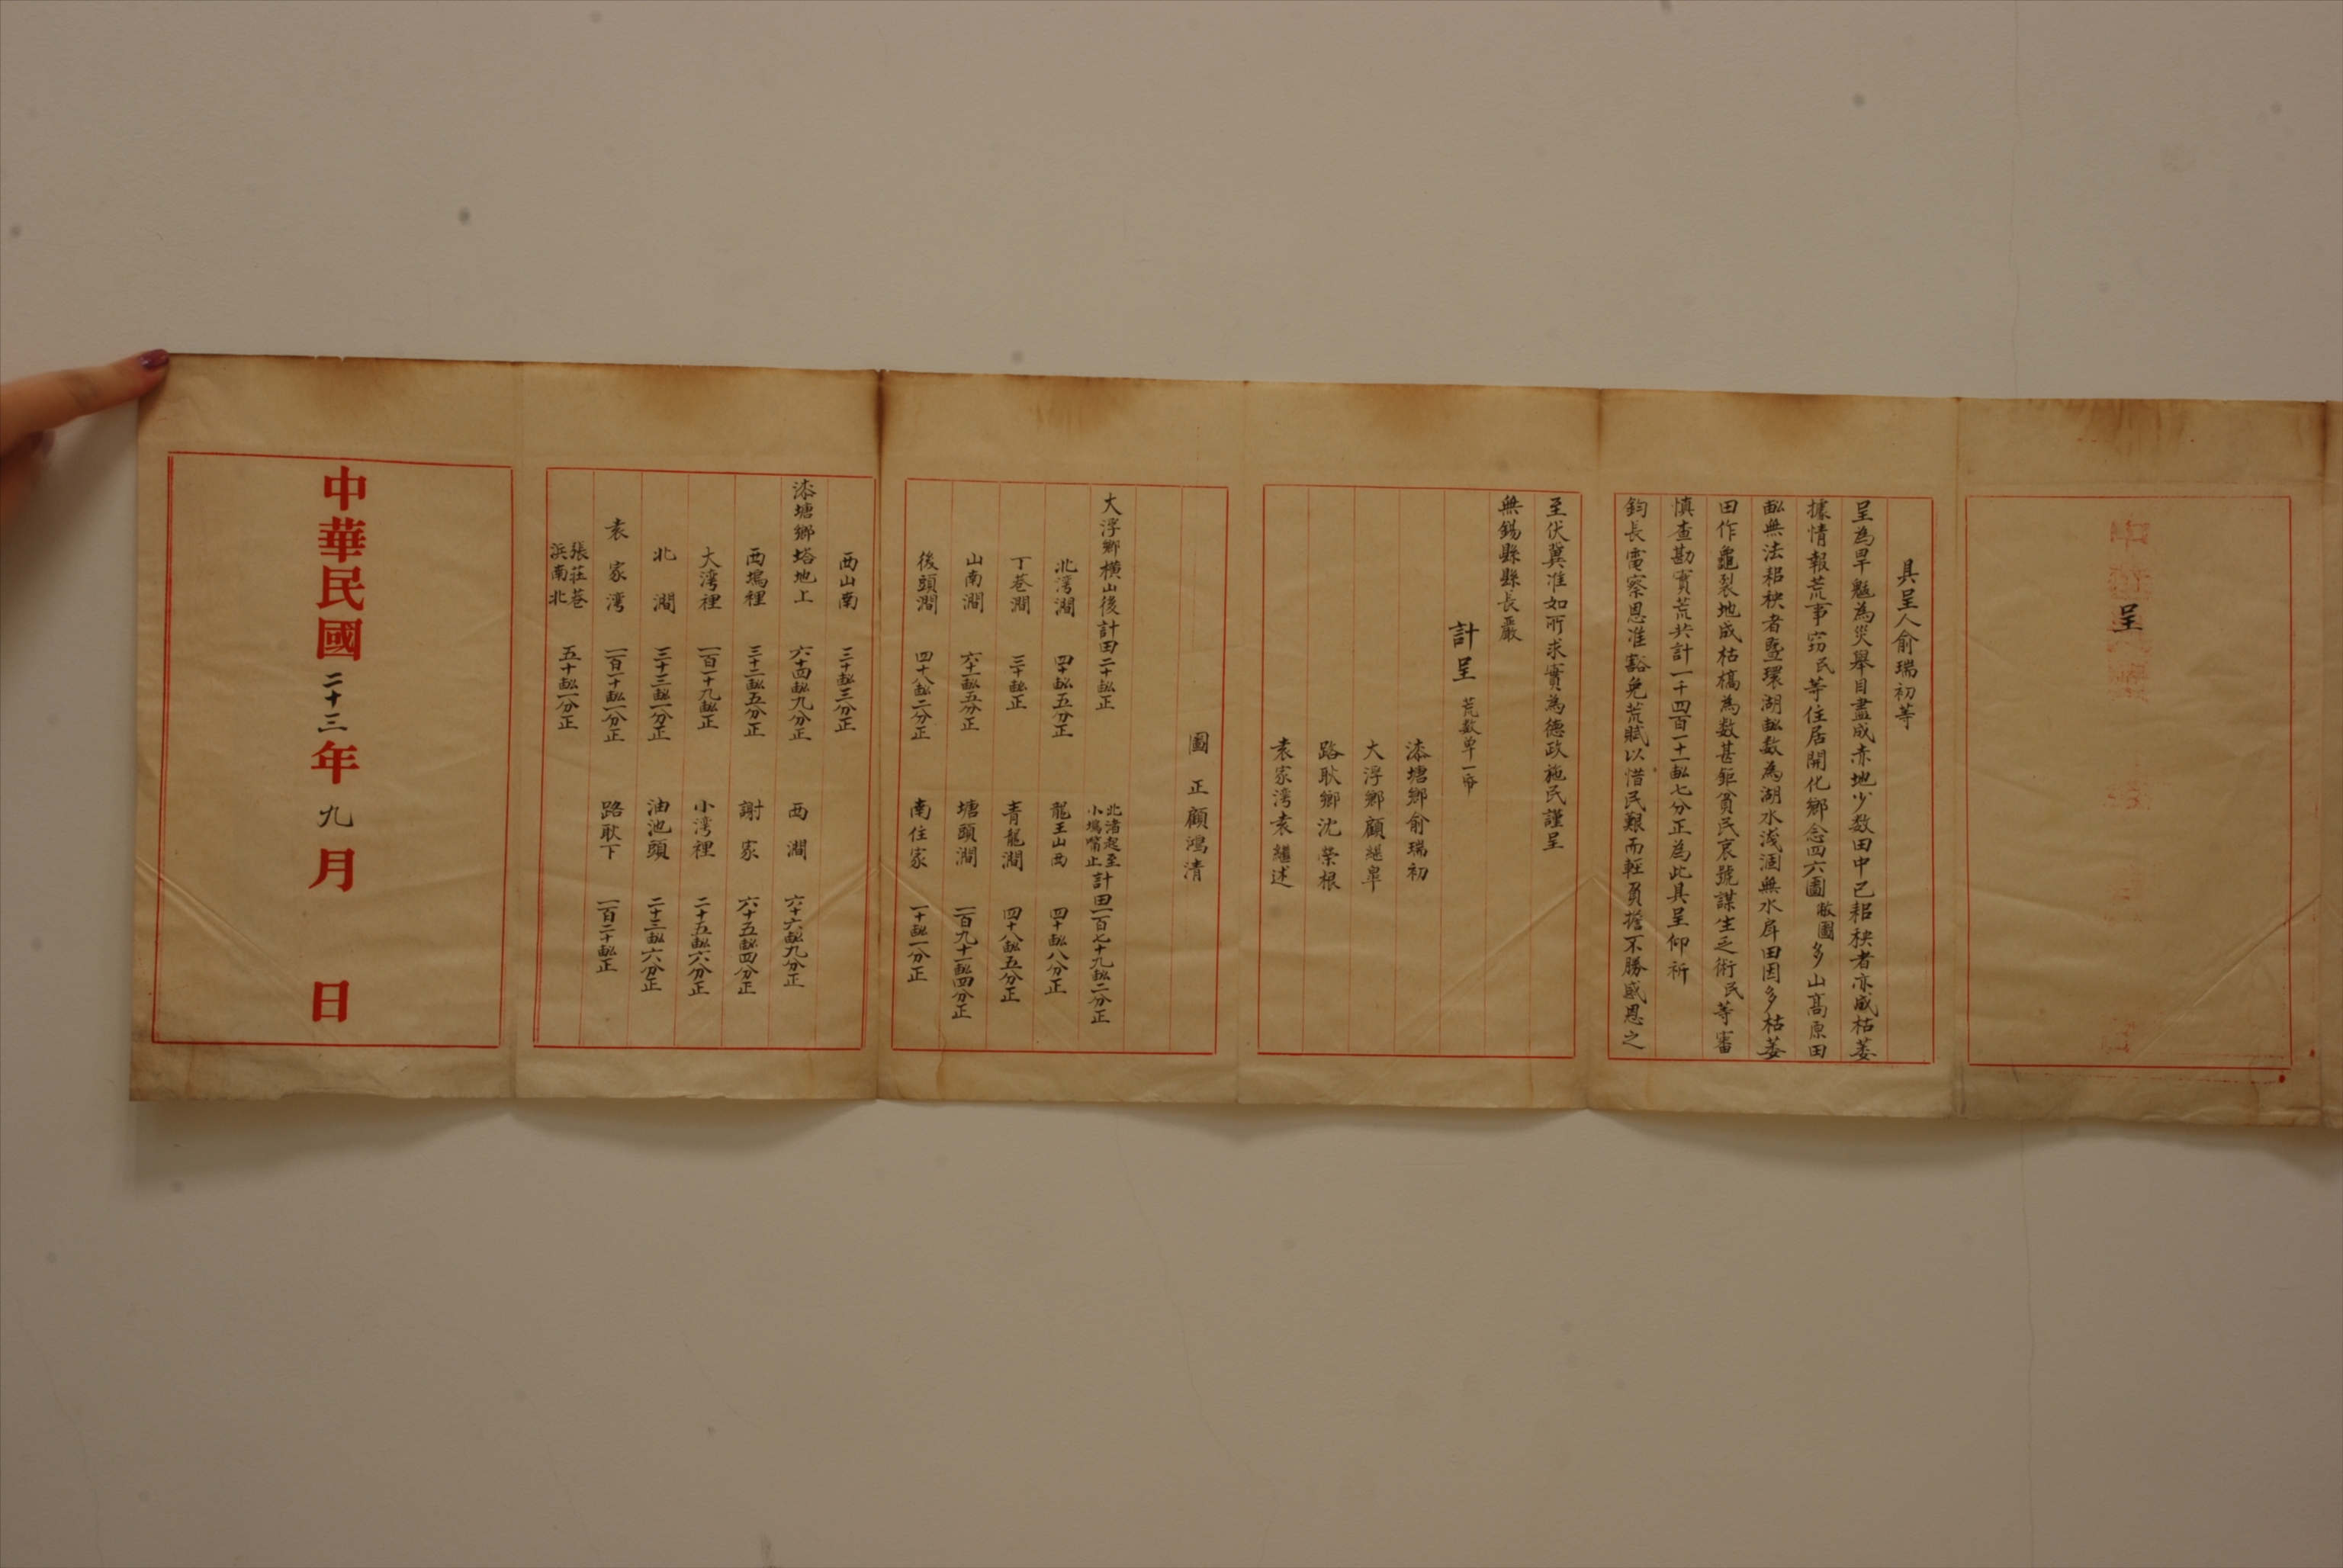 呈
具呈人俞瑞初等
呈為旱魃為災舉目盡成赤地少数田中已耜秧者亦咸枯萎
據情報荒事窃民等住居開化鄉念四六圖敝圖多山髙原田
畝無法耜秧者暨環湖畝数為湖水浅涸無水戽田因多枯萎
田作龜裂地成枯槁為数甚鉅貧民哀號謀生乏術民等審
慎查勘實荒共計一千四百一十一畝七分正為此具呈仰祈
鈞長電察恩准豁免荒賦以惜民艱而輕負擔不勝感恩之
至伏冀准如所求實為德政施民謹呈
無錫縣縣長嚴
計呈 荒数单一帋
漆塘鄉俞瑞初
大浮鄉顧緄皐
路耿鄉沈榮根
袁家灣袁繼述
圖正顧鴻清
大浮鄉横山後計田二十畝正 北渚起至小塢嘴止計田一百七十九畝二分正
北灣澗 四十畝五分正 龍王山西 四十畝八分正
丁巷澗 三十畝正 青龍澗 四十八畝五分正
山南澗 六十一畝五分正 塘頭澗 一百九十一畝四分正
後頭澗 四十八畝二分正 南住家 一十畝一分正
西山南 三十畝三分正
漆塘鄉塔地上 六十四畝九分正 西澗 六十六畝九分正
西塢裡 三十二畝五分正 謝家 六十五畝四分正
大灣裡 一百一十九畝正 小灣裡 二十五畝六分正
北澗 三十三畝一分正 油池頭 二十三畝六分正
袁家灣 一百一十畝一分正 路耿下 一百二十畝正
張莊巷浜南北 五十畝一分正
中華民國二十三年九月 日